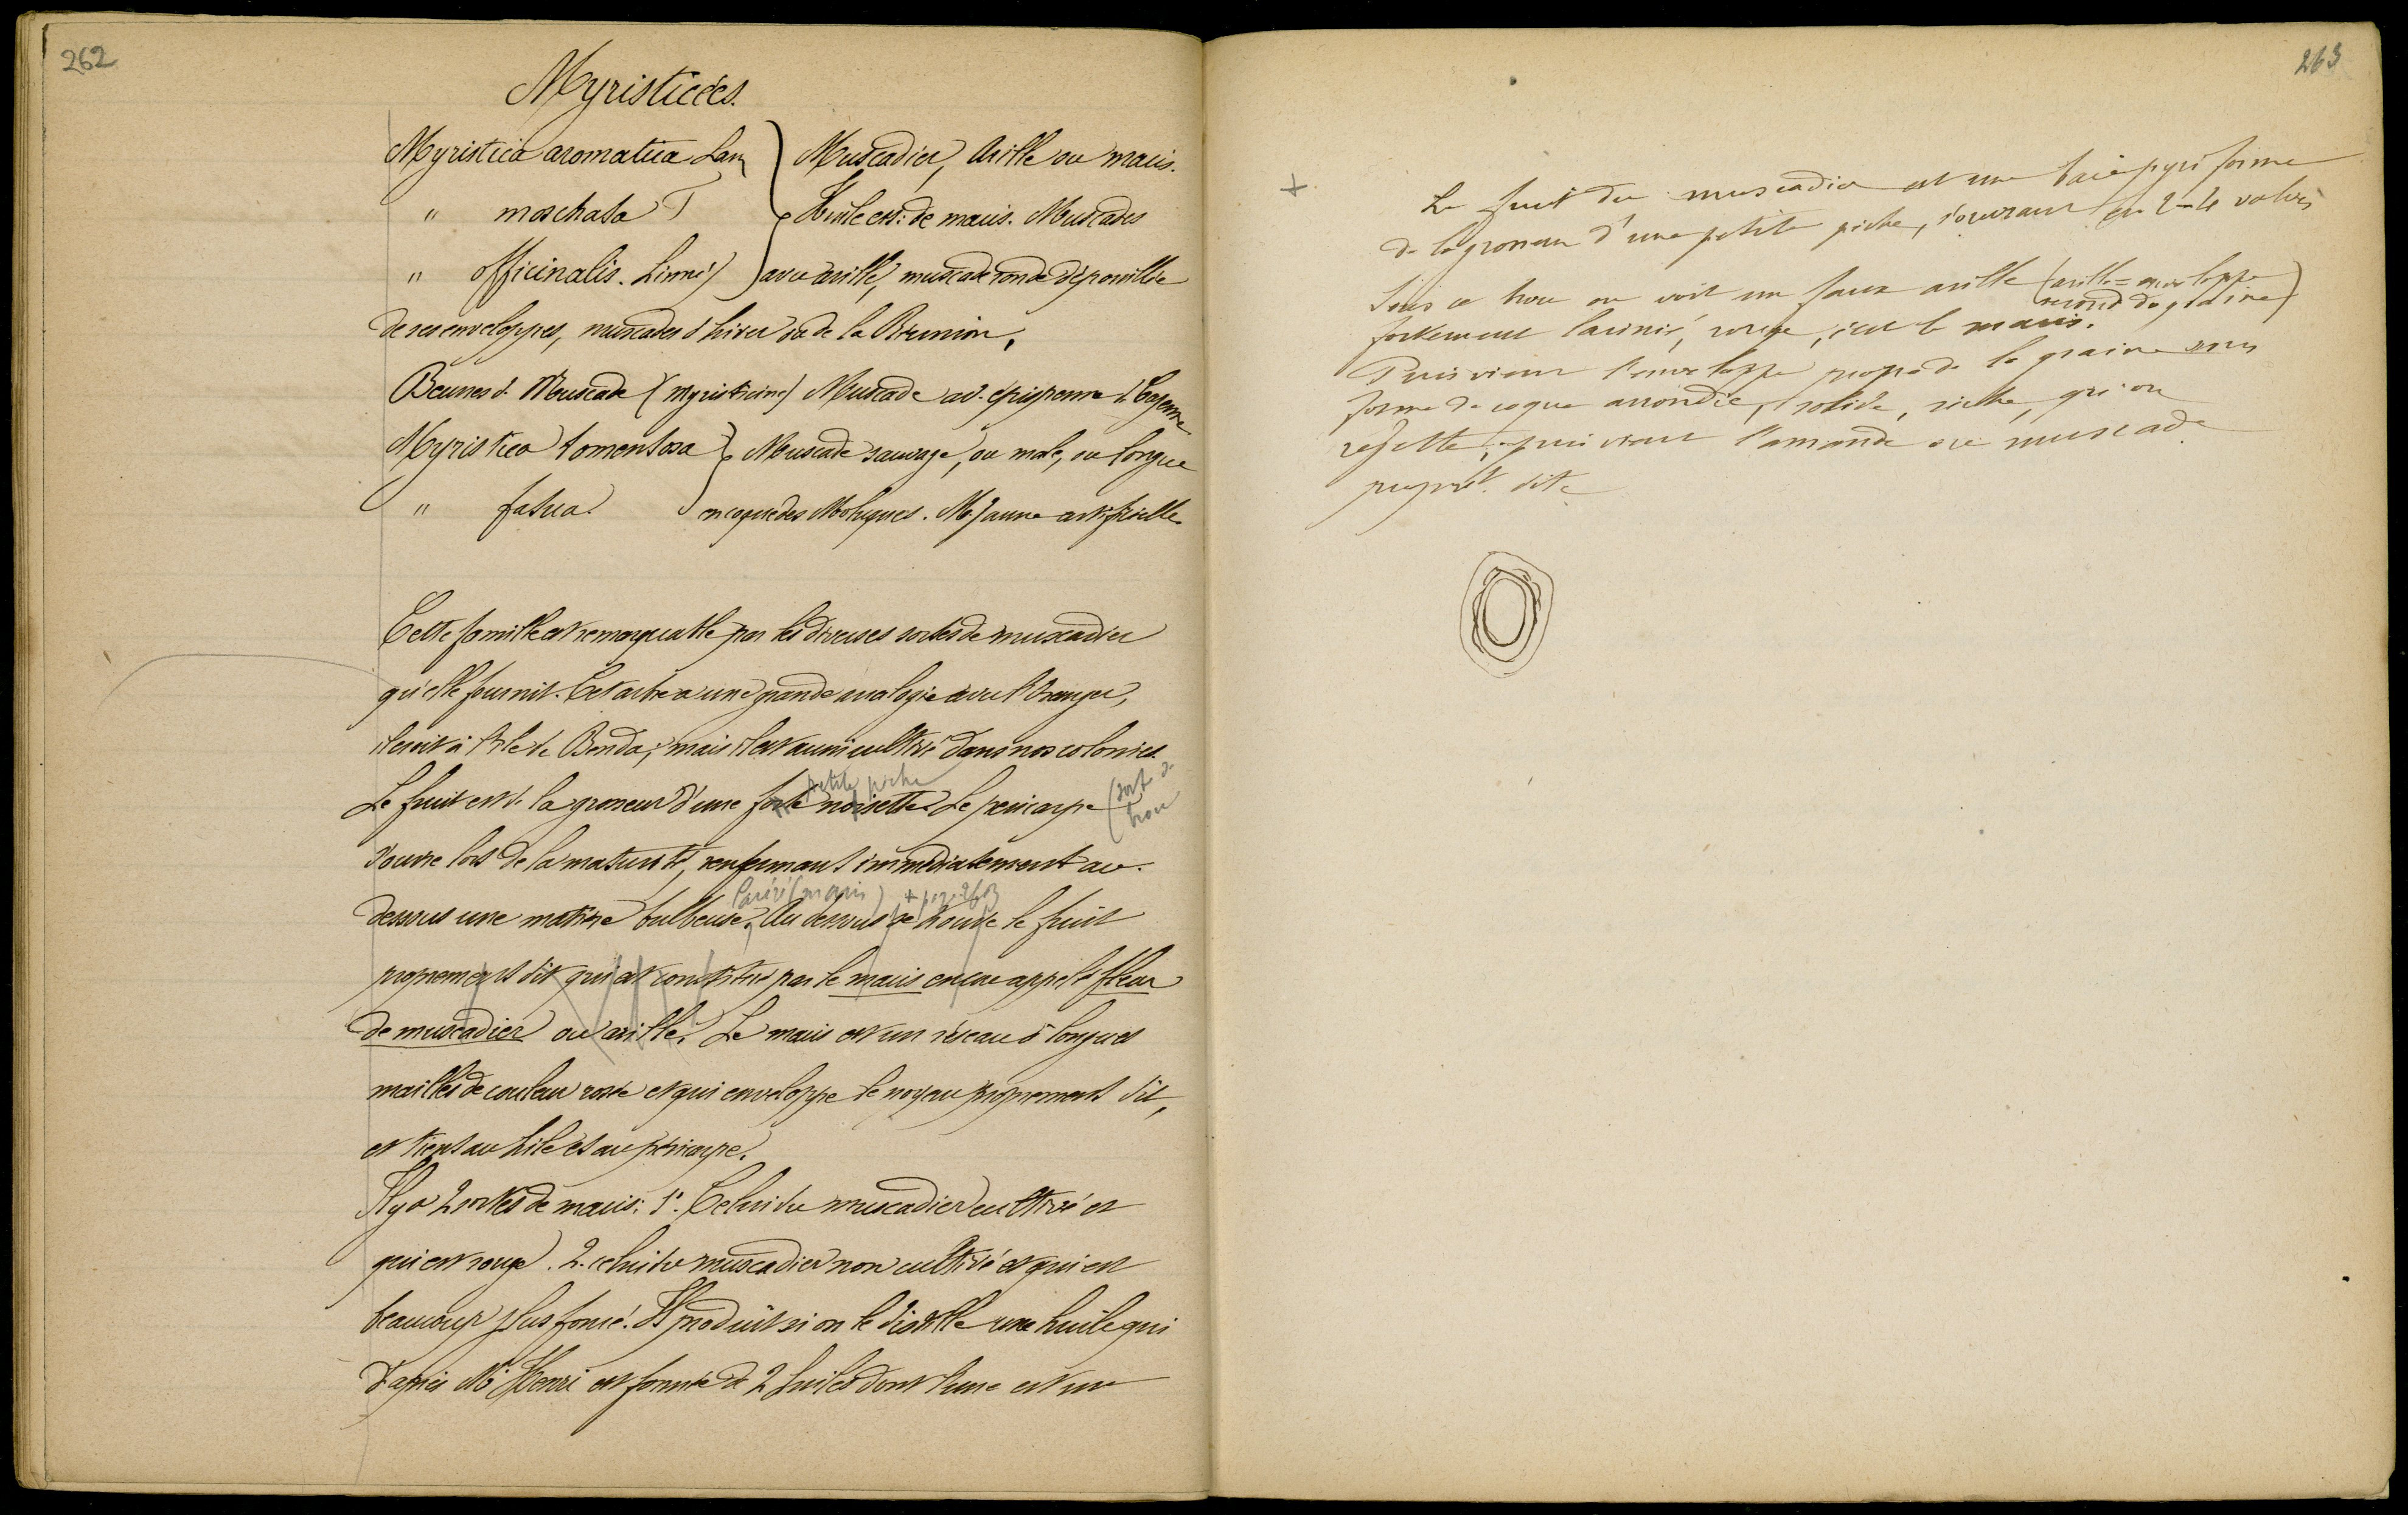 262
Myristicées.
Myristica aromatica Lam } Muscadier, Arille ou macis.
" moschata T Huile ess: de macis. Muscades
" officinalis. Linné avec arille, muscade ronde dépouillée
de ses enveloppes, muscades d'hiver ou de la Réunion.
Beurres de Muscade (myristicine) Muscade
Myristica tomentosa } Muscade sauvage, ou male, ou longue
" fatua en coque des Moluques. M. jaune artificielle
Cette famille est remarquable par les diverses sortes de muscadier
qu'elle fournit. Cet arbre a une grande analogie avec l'Oranger,
il croit à l'Ile de Banda, mais il est aussi cultivé dans nos colonies.
petite pêche
Le fruit est de la grosseur d'une forte noisette. Le péricarpe (sorte de brou
s'ouvre lors de la maturité, renfermant immédiatement au-
lacéré (macis) + page 263
dessous une matière bulbeuse. Au dessous se trouve le fruit
proprement dit qui est constitué par le macis encore appelé fleur
de muscadier ou arille. Le macis est un réseau à longues
mailles de couleur rosée et qui enveloppe le noyau proprement dit,
et tient au hile et au péricarpe.
Il y a 2 sortes de macis: 1° Celui du muscadier cultivé et
qui est rouge. 2. celui du muscadier non cultivé et qui est
beaucoup plus foncé. Il produit si on le distille une huile qui
d'après Mr Henri est formée de 2 huiles dont l'une est une
263
+ Le fruit du muscadier est une baie pyriforme
de la grosseur d'une petite pêche, s'ouvrant en 2-4 valves
Sous ce brou on voit un faux arille (arille = enveloppe
seconde de graine)
fortement lacinié, rouge, c'est le macis.
Puis vient l'enveloppe propre de la graine sous
forme de coque arrondie, solide, sèche, qu'on
rejette, puis vient l'amande ou muscade
proprmt. dite